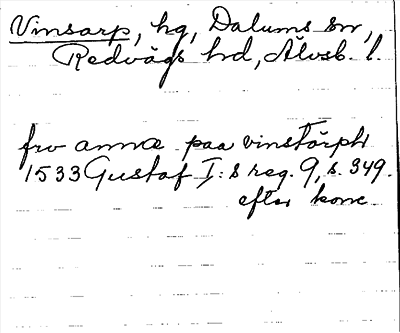 Vinsarp, hg, Dalums sn,
Redvägs hrd, Älvsb. l.
frv annæ paa vinstörph
1533 Gustaf I:s reg. 9, s. 349.
efter konc.